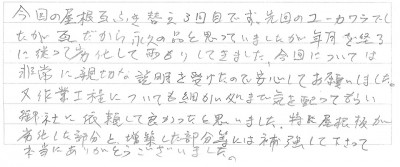 今回の屋根瓦ふき替え3回目です、先回のユーカワラでし
たが瓦だから永久の品と思っていましたが年月を経る
に従って劣化して雨もりしてきました、今回については
非常に親切な説明を受けたので安心してお願いしました。
又作業工程についても細かい処まで気を配ってもらい
御社に依頼して良かったと思いました。特に屋根板が
劣化した部分と増築した部分等には補強して下さって
本当にありがとうございました。